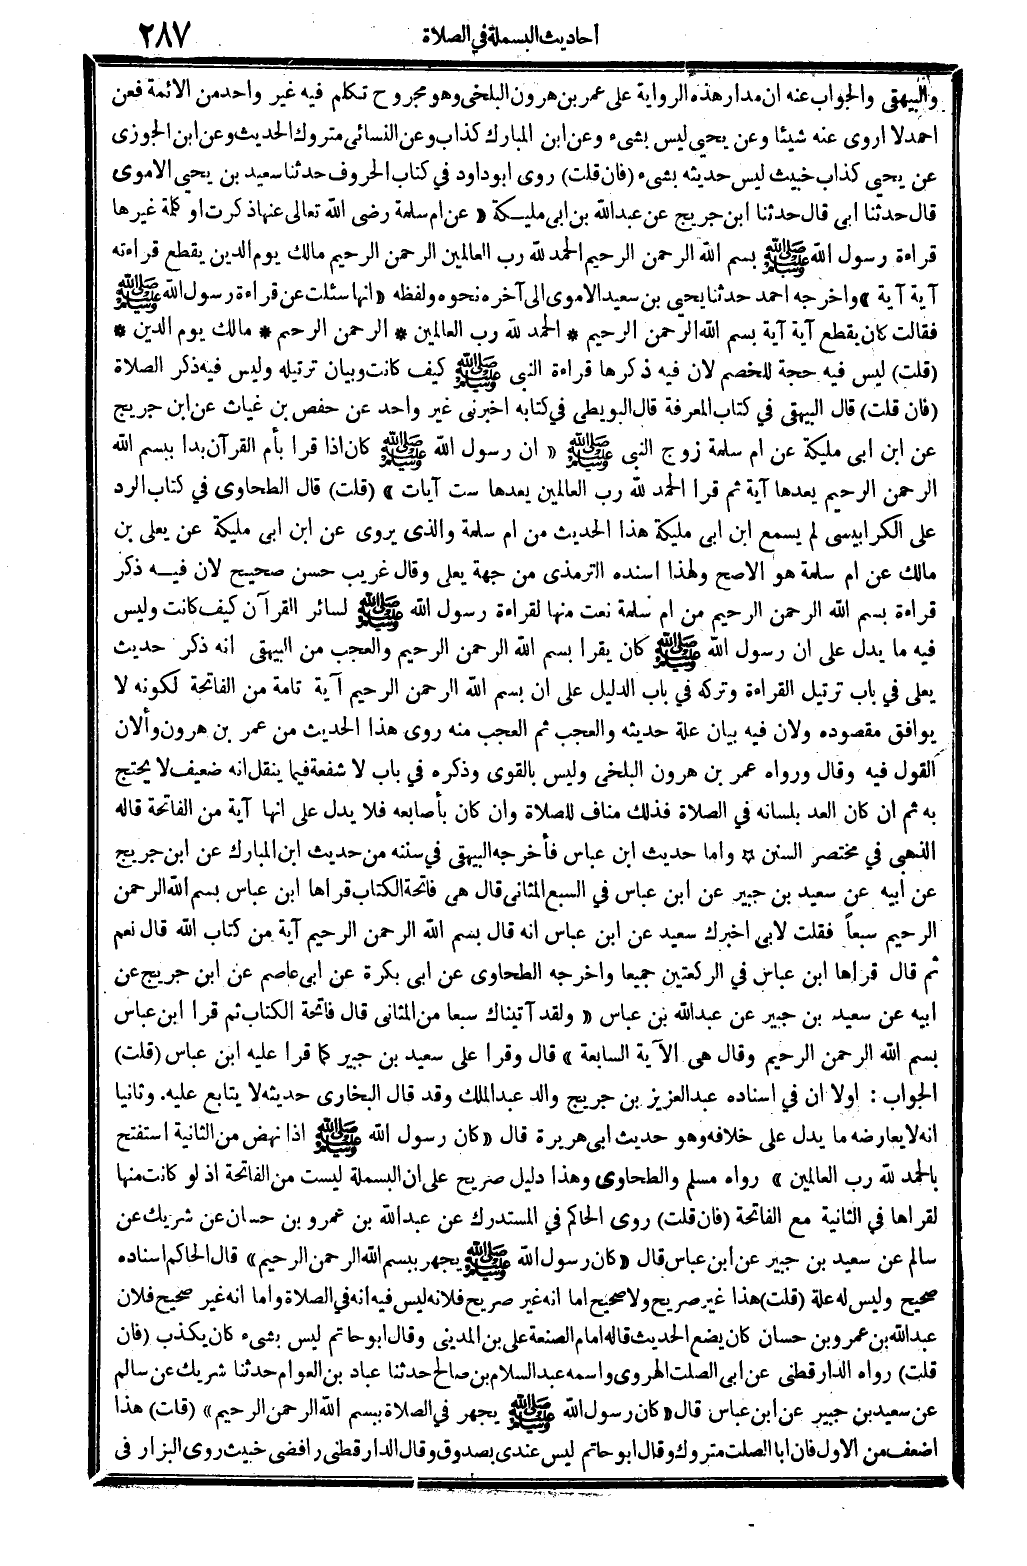 أحاديث البسملة في الصلاة ٢٨٧
والبيهقي والجواب عنه ان مدار هذه الرواية على عمر بن هرون البلخى وهو مجروح تكلم فيه غير واحد من الائمة فعن
احمد لا اروى عنه شيئا وعن يحيى ليس بشىء وعن ابن المبارك كذاب وعن النسائى متروك الحديث وعن ابن الجوزى
عن يحيى كذاب خبيث ليس حديثه بشىء (فان قلت) روى ابو داود في كتاب الحروف حدثنا سعيد بن يحيى الاموى
قال حدثنا ابى قال حدثنا ابن جريج عن عبدالله بن ابى مليكة « عن ام سلمة رضى الله تعالى عنها ذكرت او كلمة غيرها
قراءة رسول الله ﷺ بسم الله الرحمن الرحيم الحمد لله رب العالمين الرحمن الرحيم مالك يوم الدين يقطع قراءته
آية آية » واخرجه احمد حدثنا يحيى بن سعيد الاموى الى آخره نحوه ولفظه « انها سئلت عن قراءة رسول الله ﷺ
فقالت كان يقطع آية آية بسم الله الرحمن الرحيم * الحمد لله رب العالمين * الرحمن الرحيم * مالك يوم الدين *
(قلت) ليس فيه حجة للخصم لان فيه ذكرها قراءة النبى ﷺ كيف كانت وبيان ترتيله وليس فيه ذكر الصلاة
(فان قلت) قال البيهقى في كتاب المعرفة قال البويطى في كتابه اخبرنى غير واحد عن حفص بن غياث عن ابن جريج
عن ابن ابى مليكة عن ام سلمة زوج النبى ﷺ « ان رسول الله ﷺ كان اذا قرا بأم القرآن بدا ببسم الله
الرحمن الرحيم يعدها آية ثم قرا الحمد لله رب العالمين يعدها ست آيات » (قلت) قال الطحاوى في كتاب الرد
على الكرابيسى لم يسمع ابن ابى مليكة هذا الحديث من ام سلمة والذى يروى عن ابن ابى مليكة عن يعلى بن
مالك عن ام سلمة هو الاصح ولهذا اسنده الترمذى من جهة يعلى وقال غريب حسن صحيح لان فيه ذكر
قراءة بسم الله الرحمن الرحيم من ام سلمة نعت منها لقراءة رسول الله ﷺ لسائر القرآن كيف كانت وليس
فيه ما يدل على ان رسول الله ﷺ كان يقرا بسم الله الرحمن الرحيم والعجب من البيهقى انه ذكر حديث
يعلى في باب ترتيل القراءة وتركه في باب الدليل على ان بسم الله الرحمن الرحيم آية تامة من الفاتحة لكونه لا
يوافق مقصوده ولان فيه بيان علة حديثه والعجب ثم العجب منه روى هذا الحديث من عمر بن هرون وألان
القول فيه وقال ورواه عمر بن هرون البلخى وليس بالقوى وذكره في باب لا شفعة فيما ينقل انه ضعيف لا يحتج
به ثم ان كان العد بلسانه في الصلاة فذلك مناف للصلاة وان كان بأصابعه فلا يدل على انها آية من الفاتحة قاله
الذهبى في مختصر السنن ☆ واما حديث ابن عباس فأخرجه البيهقى في سننه من حديث ابن المبارك عن ابن جريج
عن ابيه عن سعيد بن جبير عن ابن عباس في السبع المثانى قال هى فاتحة الكتاب قراها ابن عباس بسم الله الرحمن
الرحيم سبعاً فقلت لابى اخبرك سعيد عن ابن عباس انه قال بسم الله الرحمن الرحيم آية من كتاب الله قال نعم
ثم قال قراها ابن عباس في الركعتين جميعا واخرجه الطحاوى عن ابى بكرة عن ابى عاصم عن ابن جريج عن
ابيه عن سعيد بن جبير عن عبدالله بن عباس « ولقد آتيناك سبعا من المثانى قال فاتحة الكتاب ثم قرا ابن عباس
بسم الله الرحمن الرحيم وقال هى الآية السابعة » قال وقرا على سعيد بن جبير كما قرا عليه ابن عباس (قلت)
الجواب : اولا ان في اسناده عبدالعزيز بن جريج والد عبدالملك وقد قال البخارى حديثه لا يتابع عليه. وثانيا
انه لا يعارضه ما يدل على خلافه وهو حديث ابى هريرة قال « كان رسول الله ﷺ اذا نهض من الثانية استفتح
بالحمد لله رب العالمين » رواه مسلم والطحاوى وهذا دليل صريح على ان البسملة ليست من الفاتحة اذ لو كانت منها
لقراها في الثانية مع الفاتحة (فان قلت) روى الحاكم في المستدرك عن عبدالله بن عمرو بن حسان عن شريك عن
سالم عن سعيد بن جبير عن ابن عباس قال « كان رسول الله ﷺ يجهر ببسم الله الرحمن الرحيم » قال الحاكم اسناده
صحيح وليس له علة (قلت) هذا غير صريح ولا صحيح اما انه غير صريح فلانه ليس فيه انه في الصلاة واما انه غير صحيح فلان
عبدالله بن عمرو بن حسان كان يضع الحديث قاله امام الصنعة على بن المدينى وقال ابو حاتم ليس بشىء كان يكذب (فان
قلت) رواه الدارقطنى عن ابى الصلت الهروى واسمه عبدالسلام بن صالح حدثنا عباد بن العوام حدثنا شريك عن سالم
عن سعيد بن جبير عن ابن عباس قال « كان رسول الله ﷺ يجهر في الصلاة ببسم الله الرحمن الرحيم » (قلت) هذا
اضعف من الاول فان ابا الصلت متروك وقال ابو حاتم ليس عندى بصدوق وقال الدارقطنى رافضى خبيث روى البزار فى